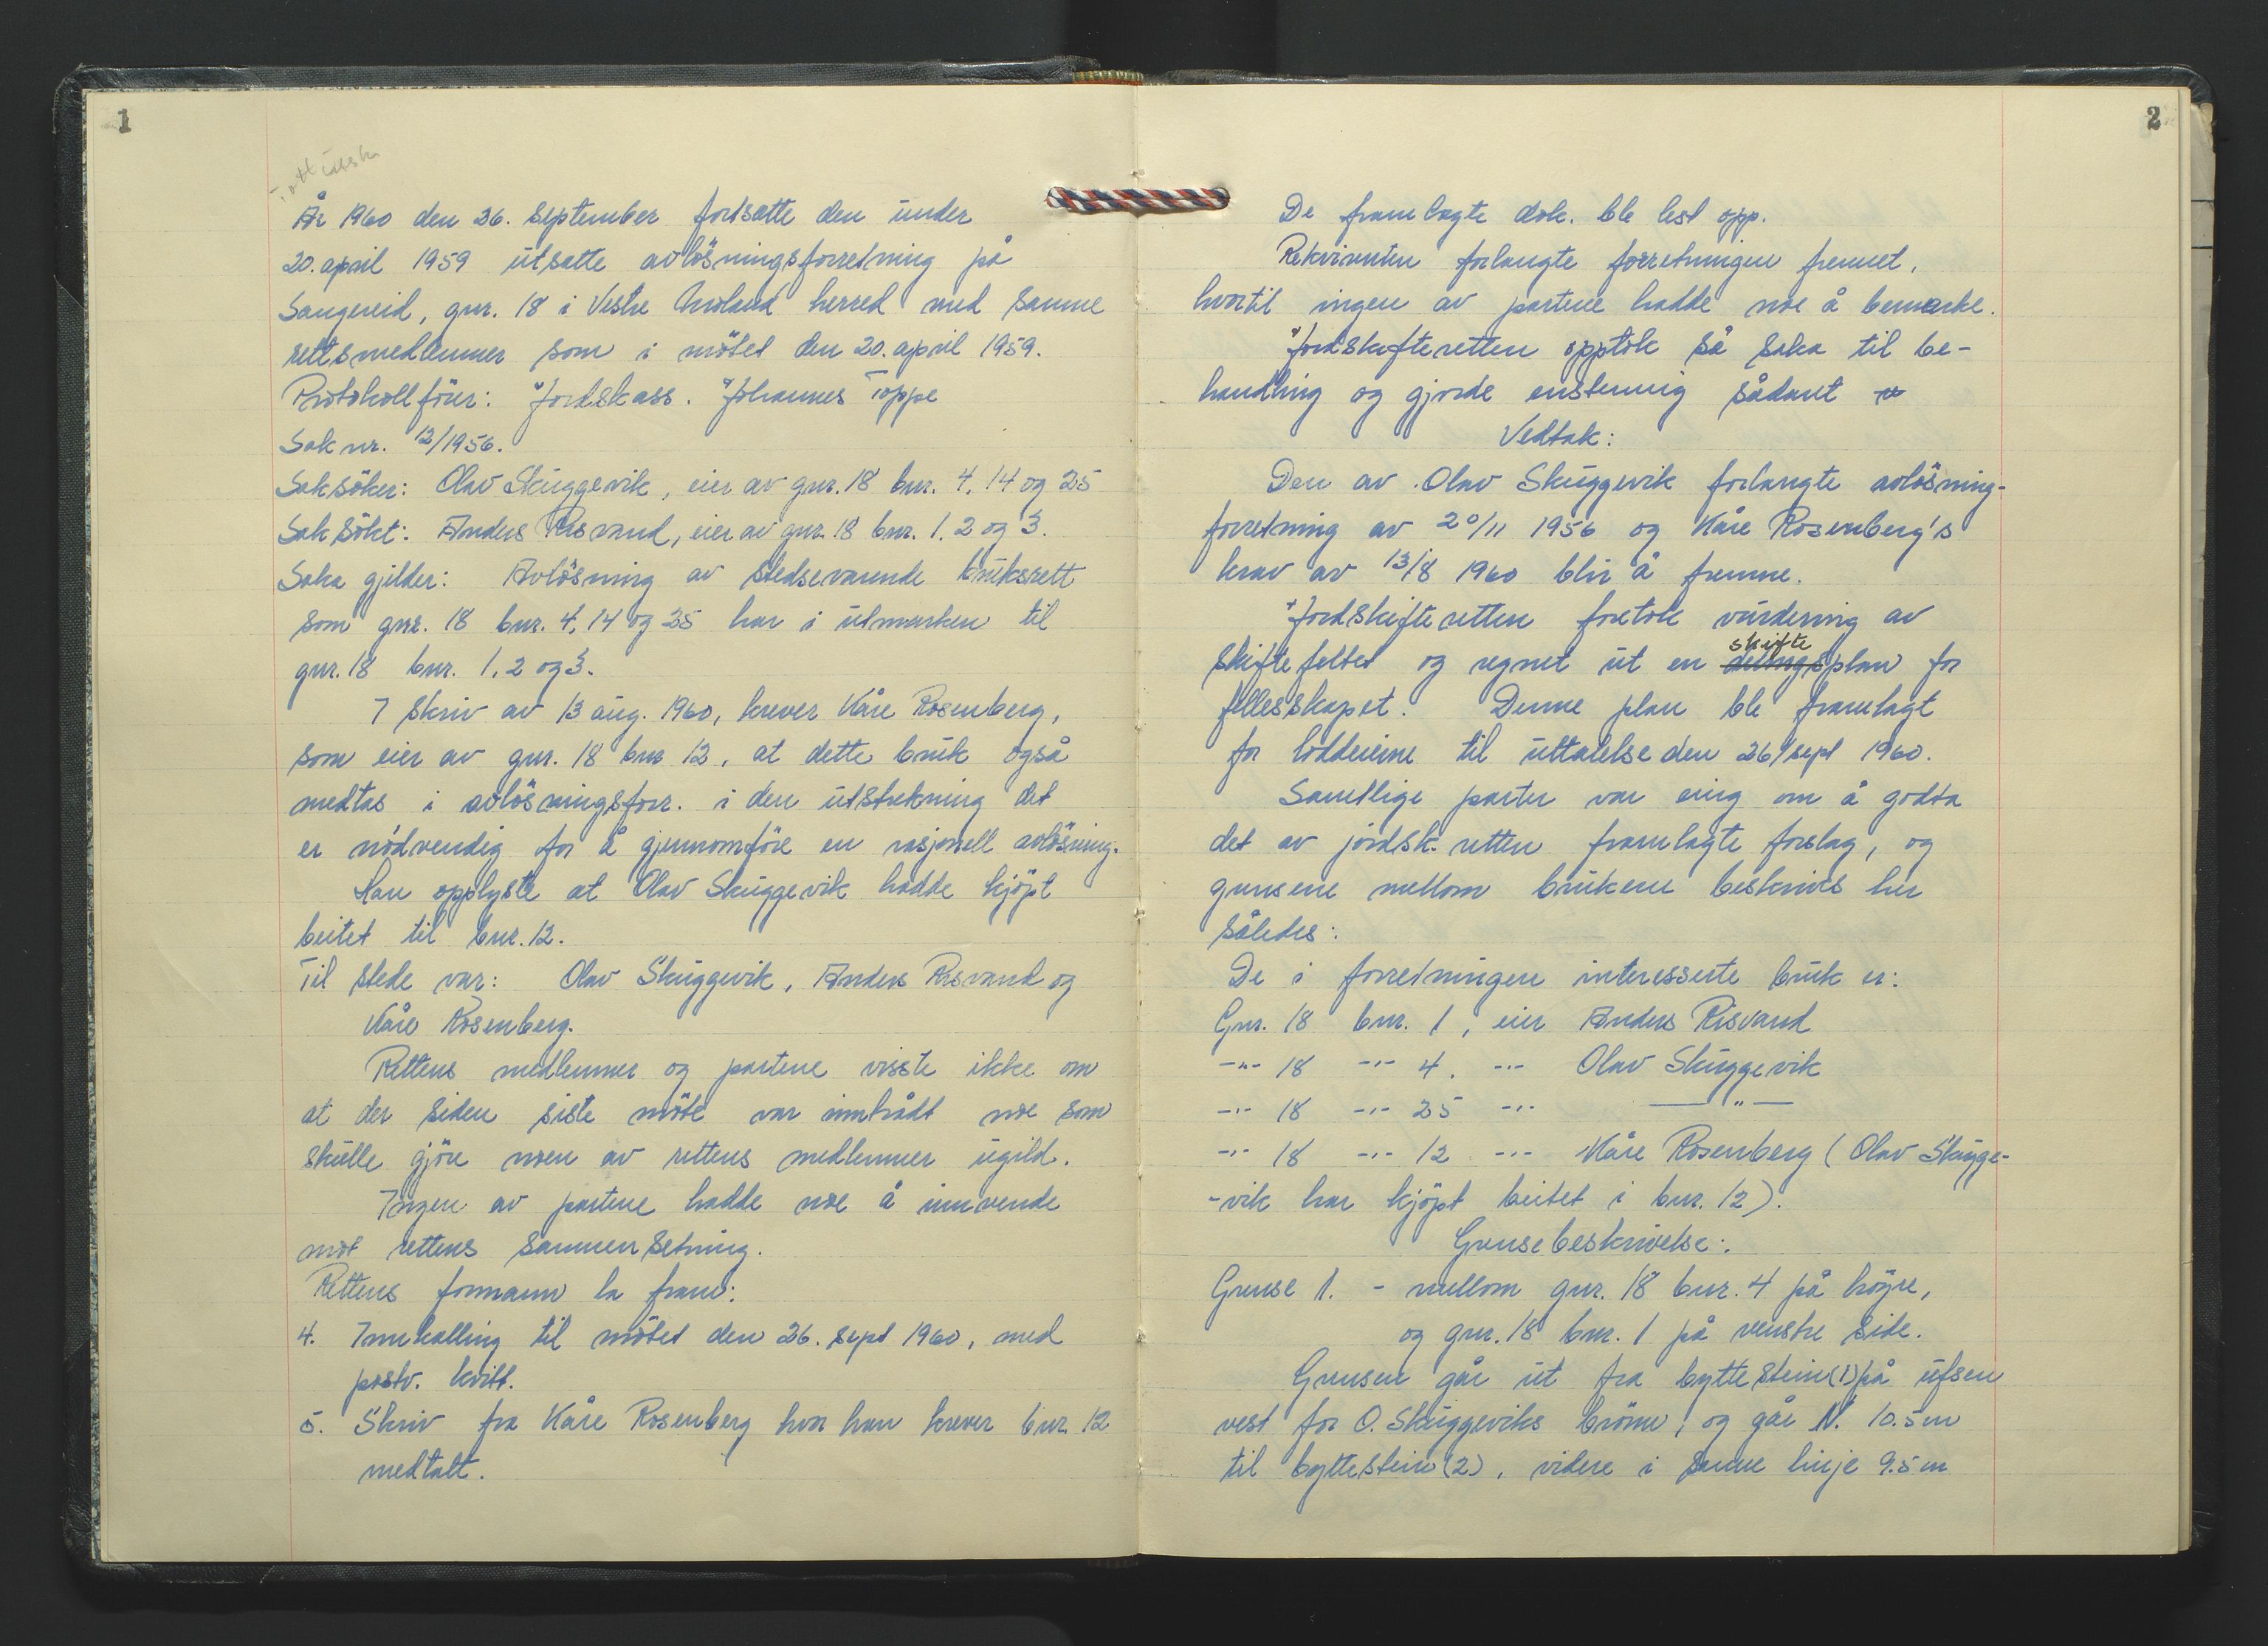 1
År 1960 den 26. september fortsatte den under
20. april 1959 utsatte avlösningsforretning på
Sangereid, gnr. 18 i Vestre Moland herred med samme
rettsmedlemmer som i mötet den 20. april 1959.
Protokollförer: Jordskass. Johannes Toppe
Sak nr. 12/1956.
Saksöker: Olav Skuggevik, eier av gnr. 18 bnr. 4, 14 og 25
Saksökt: Anders Risvand, eier av gnr. 18 bnr. 1, 2 og 3.
Saka gjelder: Avlösning av stedsevarende bruksrett
som gnr. 18 bnr. 4, 14 og 25 har i utmarken til
gnr. 18 bnr. 1, 2 og 3.
I skriv av 13 aug. 1960, krever Kåre Rosenberg,
som eier av gnr. 18 bnr 12, at dette bruk også
medtas i avlösningsforr. i den utstrekning det
er nödvendig for å gjennomföre en rasjonell avlösning.
Han opplyste at Olav Skuggevik hadde kjöpt
beitet til bnr. 12.
Til stede var: Olav Skuggevik, Anders Risvand og
Kåre Rosenberg.
Rettens medlemmer og partene visste ikke om
at der siden siste möte var inntrådt noe som
skulle gjöre noen av rettens medlemmer ugild.
Ingen av partene hadde noe å innvende
mot rettens sammensetning.
Rettens formann la fram:
4. Innkalling til mötet den 26. sept 1960, med
postv. kvitt.
5. Skriv fra Kåre Rosenberg hvor han krever bnr. 12
medtatt.
2
De framlagte dok. ble lest opp.
Rekvirenten forlangte forretningen fremmet,
hvortil ingen av partene hadde noe å bemerke.
Jordskifteretten opptok så saka til be-
handling og gjorde enstemmig sådant
Vedtak:
Den av Olav Skuggevik forlangte avlösning-
forretning av 20/11 1956 og Kåre Rosenberg's
krav av 13/8 1960 blir å fremme.
Jordskifteretten foretok vurdering av
skifte
skiftefeltet og regnet ut en delingsplan for
fellesskapet. Denne plan ble framlagt
for loddeierne til uttalelse den 26/sept 1960.
Samtlige parter var enig om å godta
det av jordsk. retten framlagte forslag, og
grensene mellom brukene beskrives her
således:
De i forretningen interesserte bruk er:
Gnr. 18 bnr. 1, eier Anders Risvand
-"- 18 -"- 4. -"- Olav Skuggevik
-"- 18 -"- 25 -"- —"—
-"- 18 -"- 12 -"- Kåre Rosenberg (Olav Skugge-
-vik har kjöpt beitet i bnr. 12).
Grensebeskrivelse:
Grense 1. - mellom gnr. 18 bnr. 4 på höyre,
og gnr. 18 bnr. 1 på venstre side.
Grensen går ut fra byttestein (1) på ufsen
vest for O. Skuggeviks brönn, og går N. 10.5 m
til byttestein (2), videre i samme linje 9.5 m